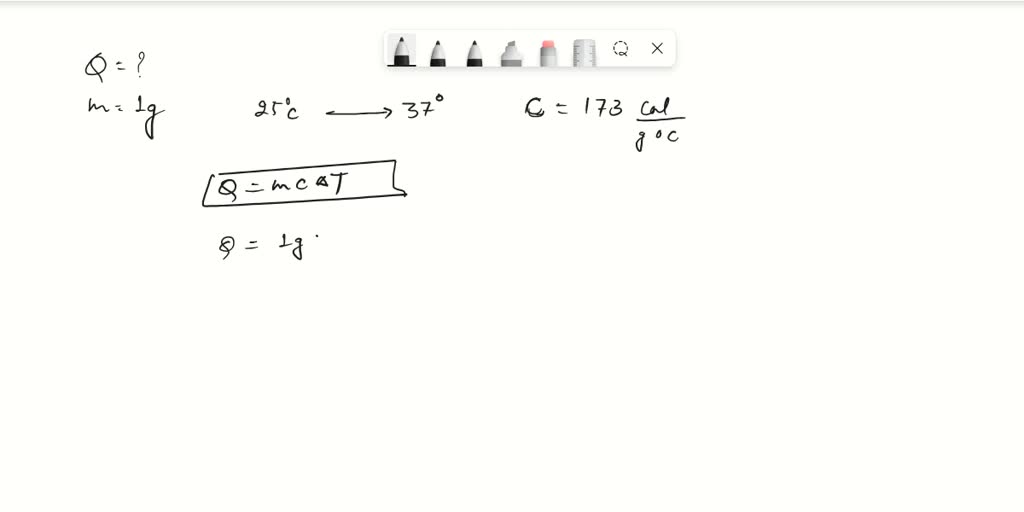 Q = ?
m = 1g 25°C ⟶ 37° C = 173 cal/g°C
Q = mcΔT
Q = 1g ·